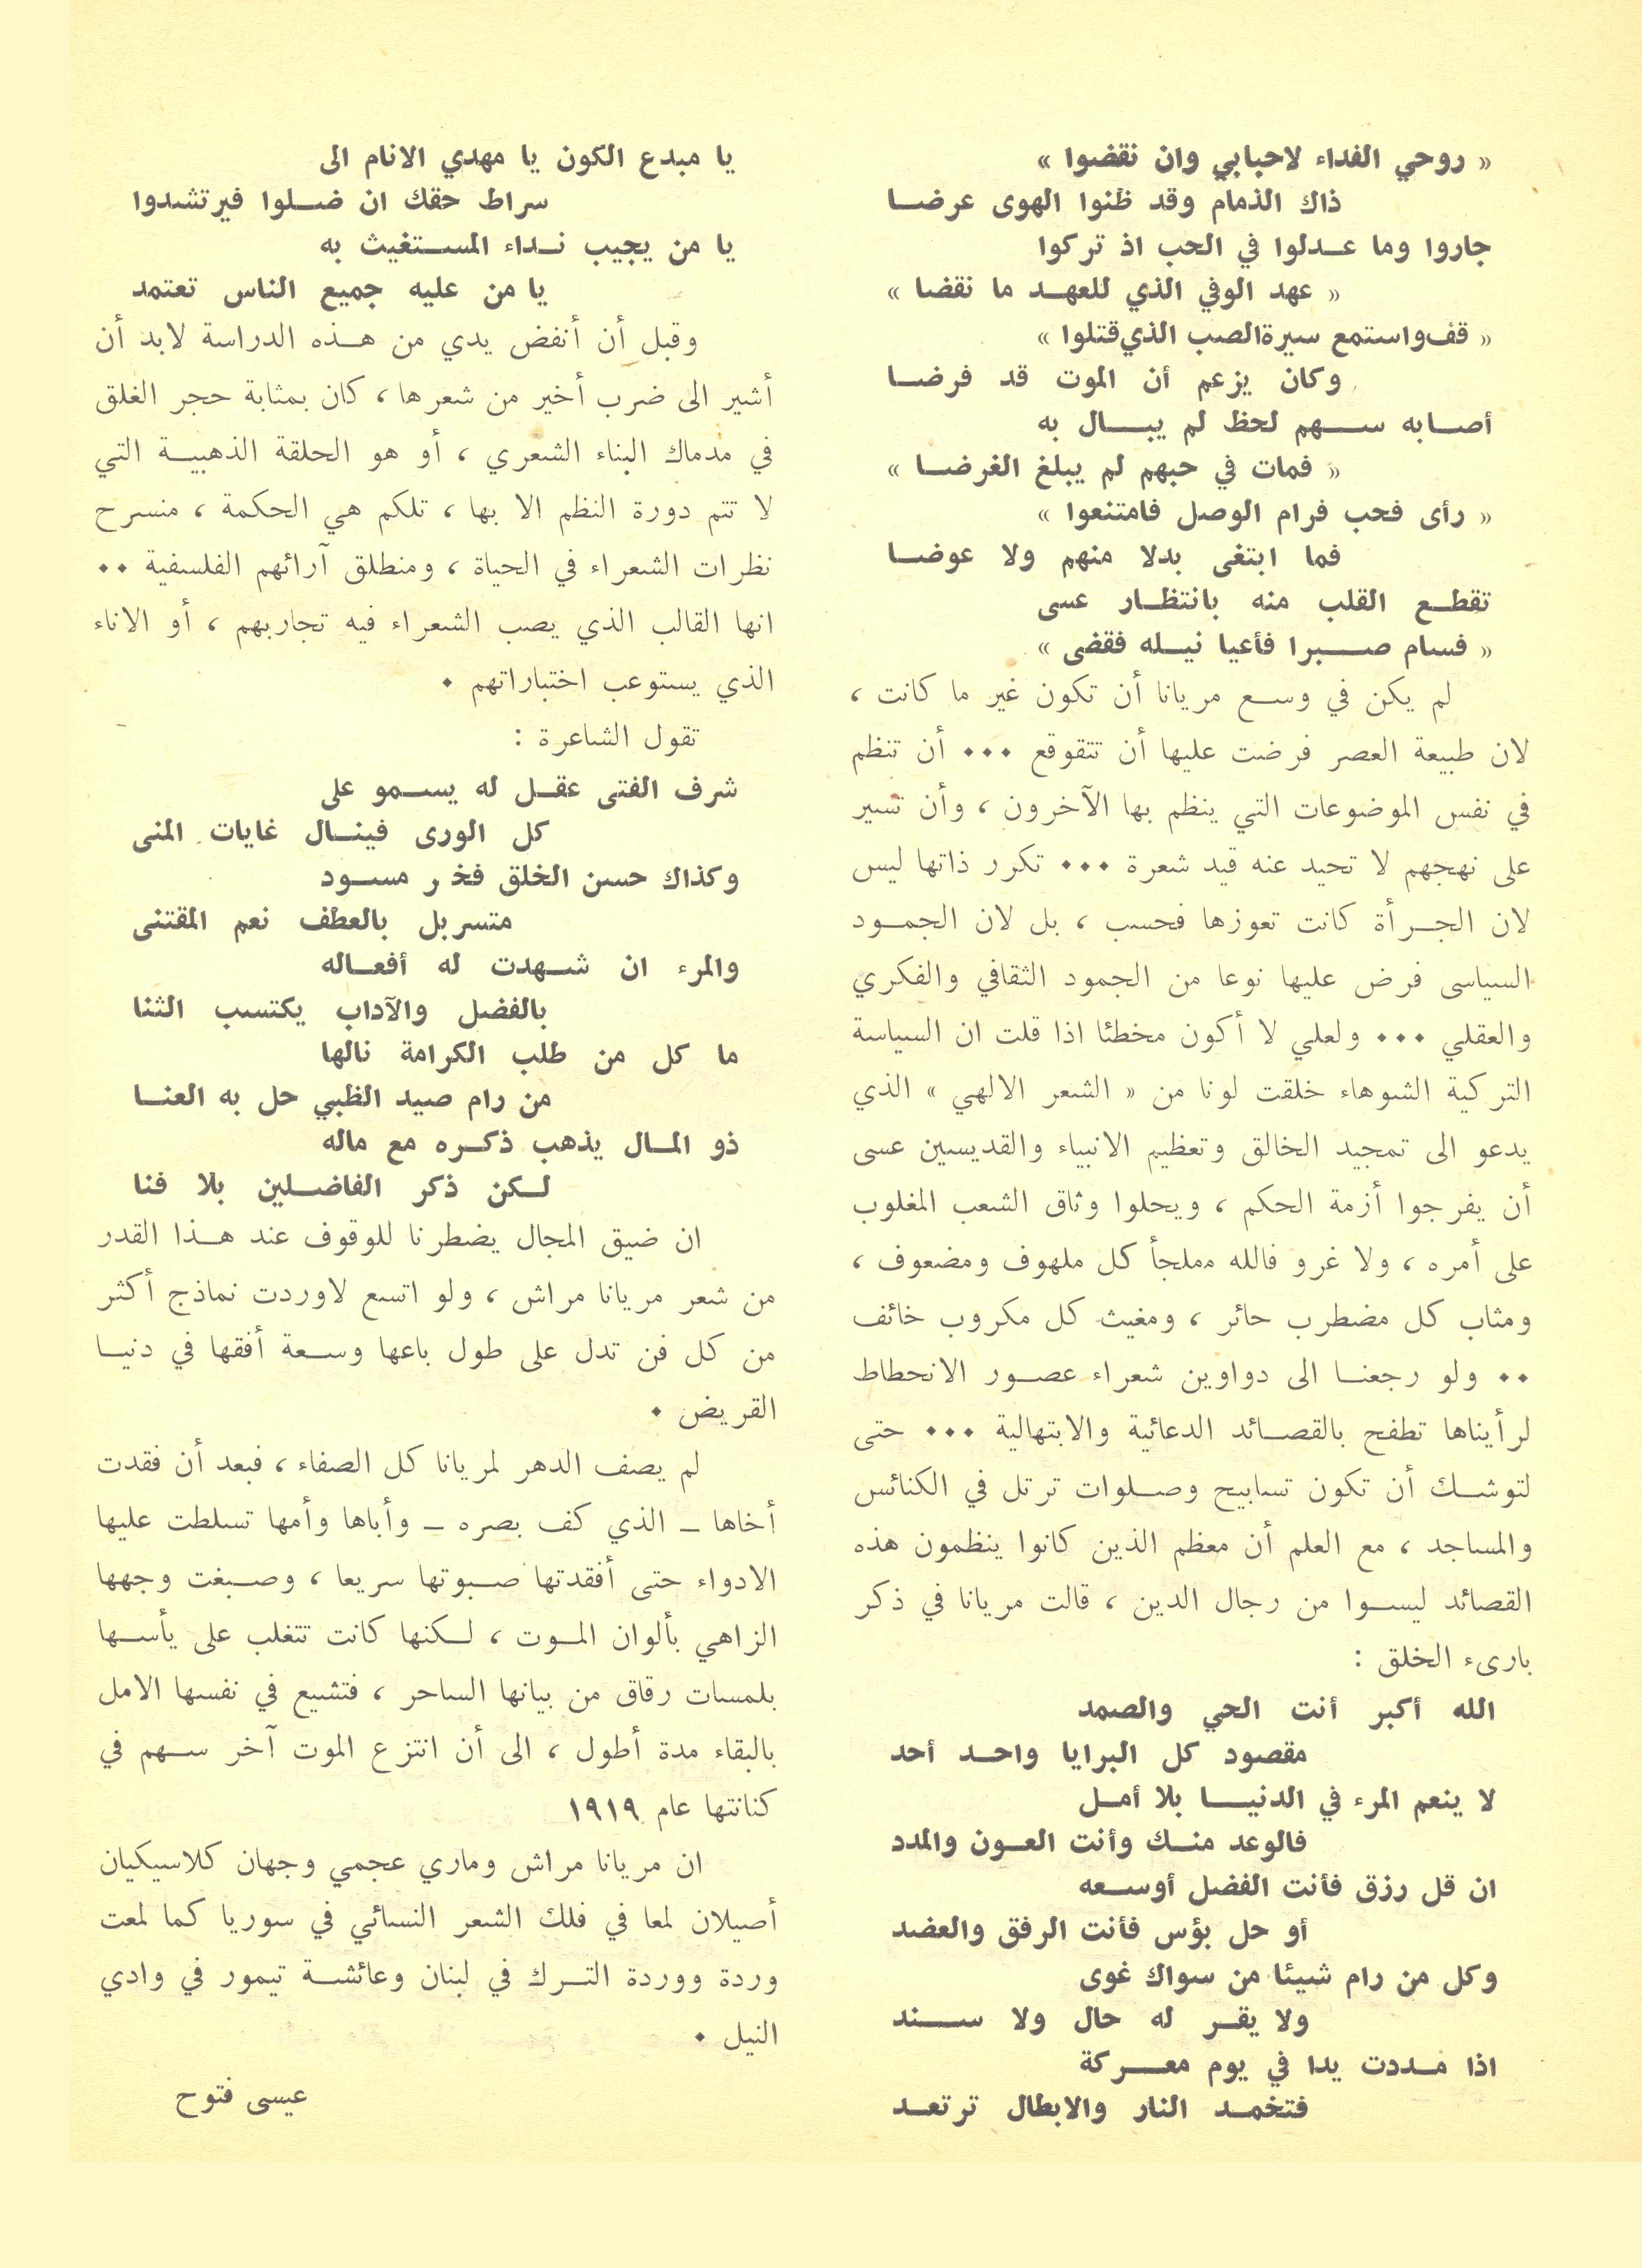 « روحي الفداء لاحبابي وان نقضوا »
ذاك الذمام وقد ظنوا الهوى عرضا
جاروا وما عدلوا في الحب اذ تركوا
« عهد الوفي الذي للعهد ما نقضا »
« قف واستمع سيرة الصب الذي قتلوا »
وكان يزعم أن الموت قد فرضا
أصابه سهم لحظ لم يبال به
« فمات في حبهم لم يبلغ الغرضا »
« رأى فحب فرام الوصل فامتنعوا »
فما ابتغى بدلا منهم ولا عوضا
تقطع القلب منه بانتظار عسى
« فسام صبرا فأعيا نيله فقضى »
لم يكن في وسع مريانا أن تكون غير ما كانت ،
لان طبيعة العصر فرضت عليها أن تتقوقع ٠٠٠ أن تنظم
في نفس الموضوعات التي ينظم بها الآخرون ، وأن تسير
على نهجهم لا تحيد عنه قيد شعرة ٠٠٠ تكرر ذاتها ليس
لان الجرأة كانت تعوزها فحسب ، بل لان الجمود
السياسى فرض عليها نوعا من الجمود الثقافي والفكري
والعقلي ٠٠٠ ولعلي لا أكون مخطئا اذا قلت ان السياسة
التركية الشوهاء خلقت لونا من « الشعر الالهي » الذي
يدعو الى تمجيد الخالق وتعظيم الانبياء والقديسين عسى
أن يفرجوا أزمة الحكم ، ويحلوا وثاق الشعب المغلوب
على أمره ، ولا غرو فالله مملجأ كل ملهوف ومضعوف ،
ومثاب كل مضطرب حائر ، ومغيث كل مكروب خائف
٠٠ ولو رجعنا الى دواوين شعراء عصور الانحطاط
لرأيناها تطفح بالقصائد الدعائية والابتهالية ٠٠٠ حتى
لتوشك أن تكون تسابيح وصلوات ترتل في الكنائس
والمساجد ، مع العلم أن معظم الذين كانوا ينظمون هذه
القصائد ليسوا من رجال الدين ، قالت مريانا في ذكر
بارىء الخلق :
الله أكبر أنت الحي والصمد
مقصود كل البرايا واحد أحد
لا ينعم المرء في الدنيا بلا أمل
فالوعد منك وأنت العون والمدد
ان قل رزق فأنت الفضل أوسعه
أو حل بؤس فأنت الرفق والعضد
وكل من رام شيئا من سواك غوى
ولا يقر له حال ولا سند
اذا مددت يدا في يوم معركة
فتخمد النار والابطال ترتعد
يا مبدع الكون يا مهدي الانام الى
سراط حقك ان ضلوا فيرتشدوا
يا من يجيب نداء المستغيث به
يا من عليه جميع الناس تعتمد
وقبل أن أنفض يدي من هذه الدراسة لابد أن
أشير الى ضرب أخير من شعرها ، كان بمثابة حجر الغلق
في مدماك البناء الشعري ، أو هو الحلقة الذهبية التي
لا تتم دورة النظم الا بها ، تلكم هي الحكمة ، منسرح
نظرات الشعراء في الحياة ، ومنطلق آرائهم الفلسفية ٠٠
انها القالب الذي يصب الشعراء فيه تجاربهم ، أو الاناء
الذي يستوعب اختباراتهم ٠
تقول الشاعرة :
شرف الفتى عقل له يسمو على
كل الورى فينال غايات المنى
وكذاك حسن الخلق فخر مسود
متسربل بالعطف نعم المقتنى
والمرء ان شهدت له أفعاله
بالفضل والآداب يكتسب الثنا
ما كل من طلب الكرامة نالها
من رام صيد الظبي حل به العنا
ذو المال يذهب ذكره مع ماله
لكن ذكر الفاضلين بلا فنا
ان ضيق المجال يضطرنا للوقوف عند هذا القدر
من شعر مريانا مراش ، ولو اتسع لاوردت نماذج أكثر
من كل فن تدل على طول باعها وسعة أفقها في دنيا
القريض ٠
لم يصف الدهر لمريانا كل الصفاء ، فبعد أن فقدت
أخاها ـ الذي كف بصره ـ وأباها وأمها تسلطت عليها
الادواء حتى أفقدتها صبوتها سريعا ، وصبغت وجهها
الزاهي بألوان الموت ، لكنها كانت تتغلب على يأسها
بلمسات رقاق من بيانها الساحر ، فتشيع في نفسها الامل
بالبقاء مدة أطول ، الى أن انتزع الموت آخر سهم في
كنانتها عام ١٩١٩
ان مريانا مراش وماري عجمي وجهان كلاسيكيان
أصيلان لمعا في فلك الشعر النسائي في سوريا كما لمعت
وردة ووردة الترك في لبنان وعائشة تيمور في وادي
النيل ٠
عيسى فتوح